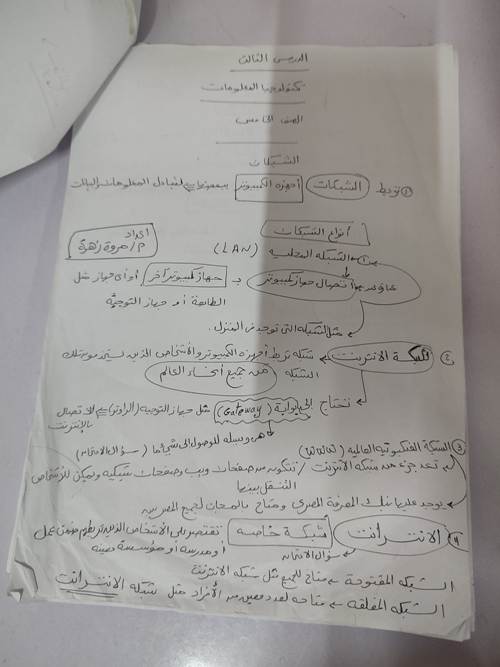 الدرس الثالث
تكنولوجيا المعلومات
الصف الخامس
الشبكات
① تربط الشبكات أجهزة الكمبيوتر ببعضها لتبادل المعلومات والبيانات
أنواع الشبكات
اعداد
م/مروة زهرة
① الشبكه المحليه (LAN)
اتصال جهاز كمبيوتر بـ جهاز كمبيوتر آخر أو أى جهاز مثل
الطابعة أو جهاز التوجيه
مثل الشبكه التى توجد فى المنزل
② شبكة الانترنت شبكه تربط أجهزه الكمبيوتر والأشخاص الذين يستخدمون تلك
الشبكه من جميع أنحاء العالم
تحتاج الى بوابة (Gateway) مثل جهاز التوجيه (الراوتر) للاتصال
بالإنترنت
هى وسيله للوصول الى شئ ما (سؤال الامتحان)
③ الشبكة العنكبوتيه العالميه (WWW)
تعد جزء من شبكه الانترنت / تتكون من صفحات ويب وصفحات شبكيه ويمكن للأشخاص
التنقل بينها
يوجد عليها بنك المعرفة المصرى ومتاح بالمجان لجميع المصريين
④ الانترانت شبكة خاصه تقتصر على الأشخاص الذين تربطهم عمل
أو مدرسة أو مؤسسة معينه
سؤال الامتحان
الشبكه المفتوحة متاح للجميع مثل شبكه الانترنت
الشبكه المغلقه متاحه لعدد معين من الأفراد مثل شبكه الانترانت